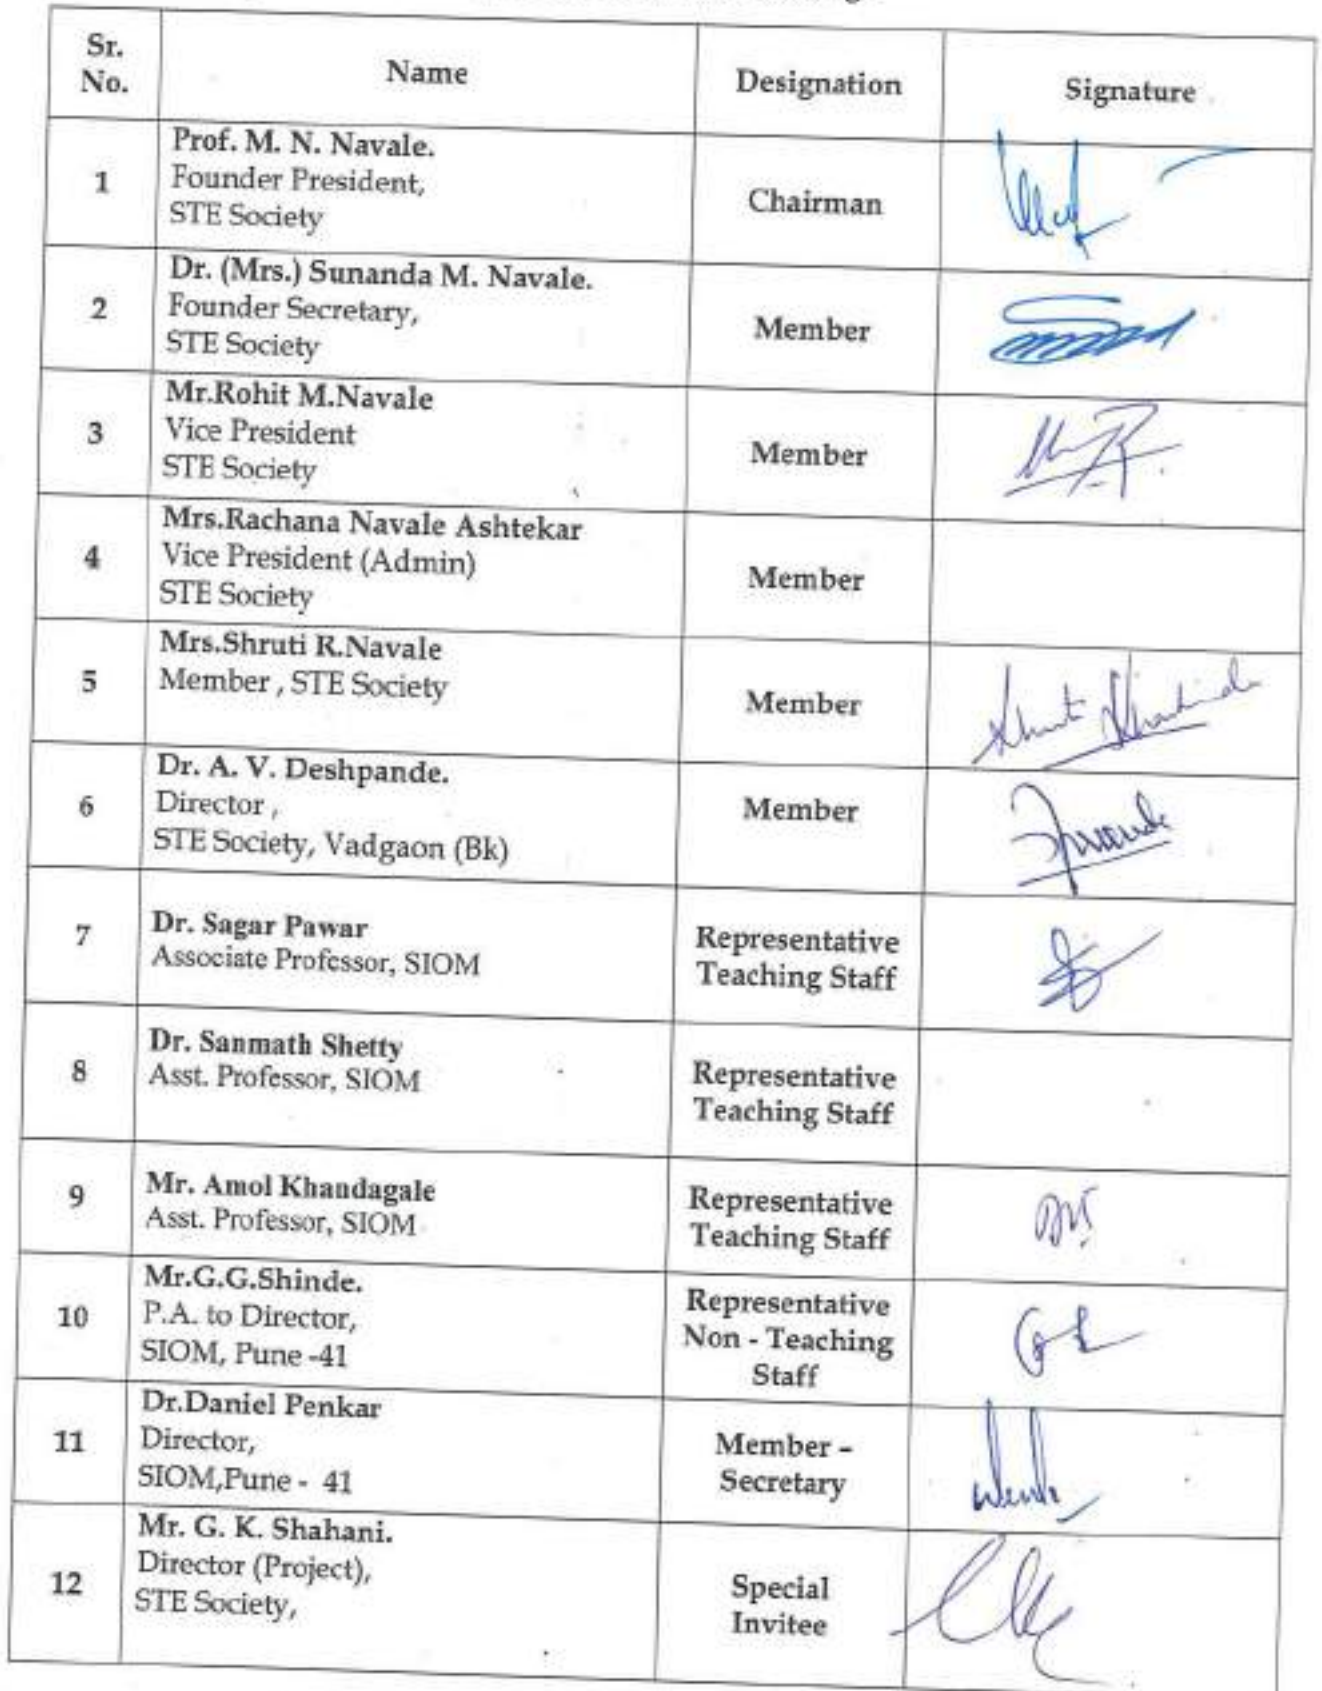 Sr.
No.
Name
Designation
Signature
1
Prof. M. N. Navale.
Founder President,
STE Society
Chairman
2
Dr. (Mrs.) Sunanda M. Navale.
Founder Secretary,
STE Society
Member
3
Mr.Rohit M.Navale
Vice President
STE Society
Member
4
Mrs.Rachana Navale Ashtekar
Vice President (Admin)
STE Society
Member
5
Mrs.Shruti R.Navale
Member , STE Society
Member
6
Dr. A. V. Deshpande.
Director ,
STE Society, Vadgaon (Bk)
Member
7
Dr. Sagar Pawar
Associate Professor, SIOM
Representative
Teaching Staff
8
Dr. Sanmath Shetty
Asst. Professor, SIOM
Representative
Teaching Staff
9
Mr. Amol Khandagale
Asst. Professor, SIOM
Representative
Teaching Staff
10
Mr.G.G.Shinde.
P.A. to Director,
SIOM, Pune -41
Representative
Non - Teaching
Staff
11
Dr.Daniel Penkar
Director,
SIOM,Pune - 41
Member –
Secretary
12
Mr. G. K. Shahani.
Director (Project),
STE Society,
Special
Invitee